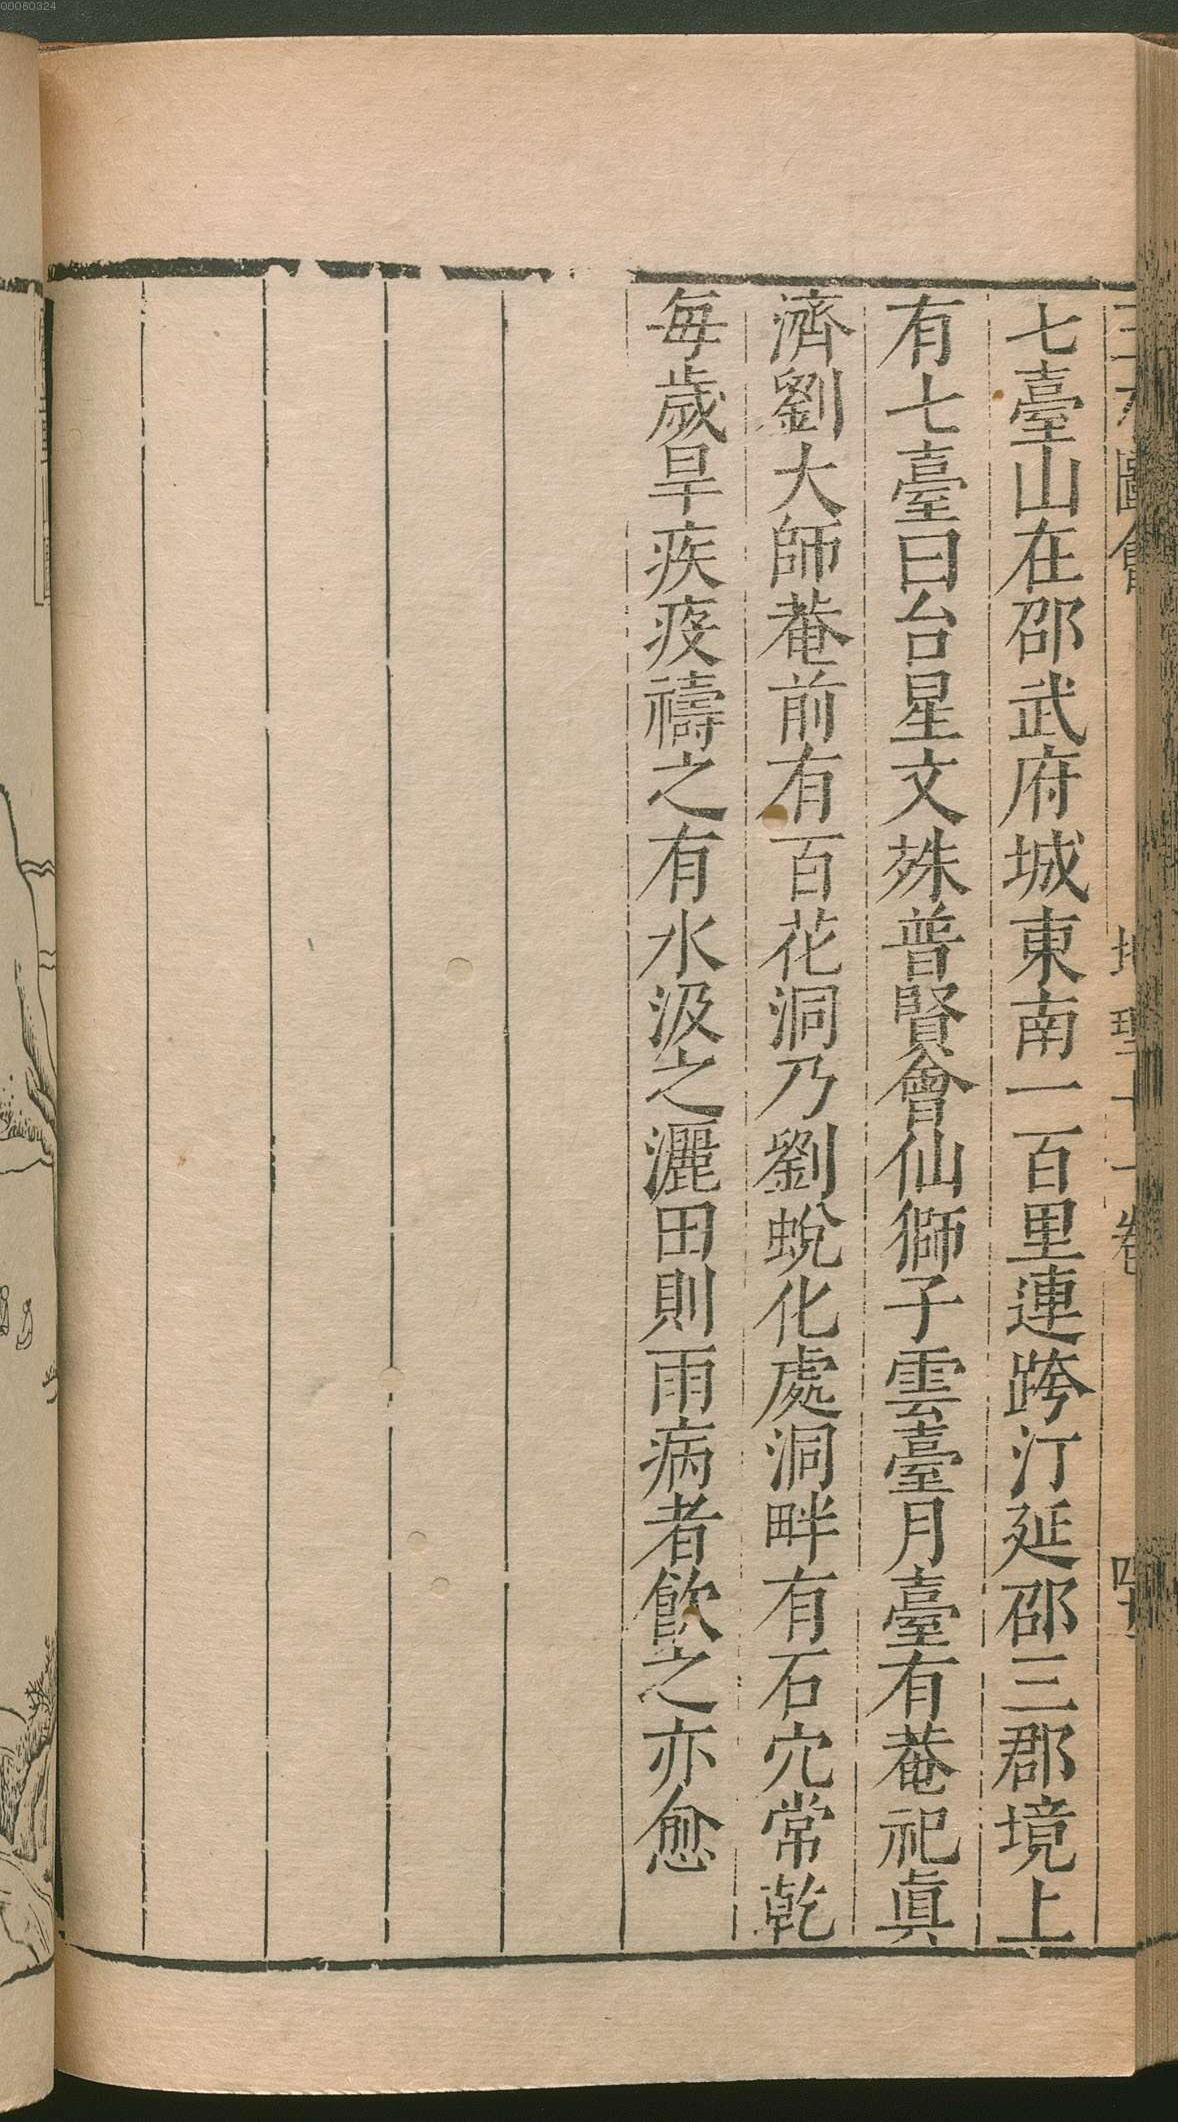 00060324
七臺山在邵武府城東南一百里連跨汀延邵三郡境上
有七臺曰台星文殊普賢會仙獅子雲臺月臺有菴祀眞
濟劉大師菴前有百花洞乃劉蛻化處洞畔有石穴常乾
每歲旱疾疫禱之有水汲之灑田則雨病者飲之亦愈